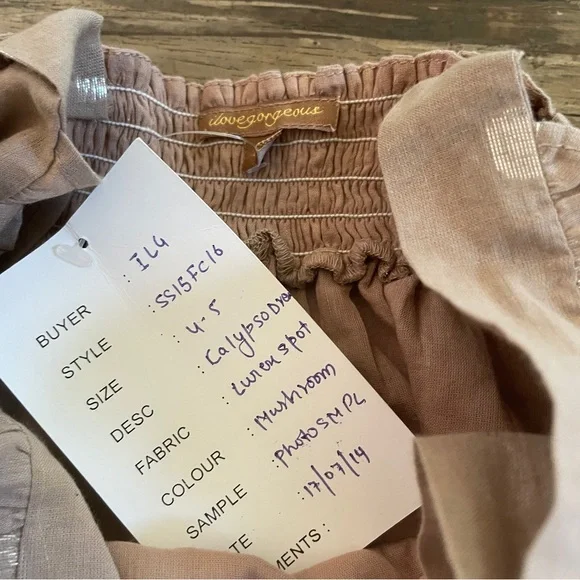 ilovegorgeous
BUYER : ILG
STYLE : SS15FC16
SIZE : 4-5
DESC : Calypso Dre
FABRIC : Lurex spot
COLOUR : Mushroom
SAMPLE : Photo SMPL
TE : 17/07/14
MENTS :